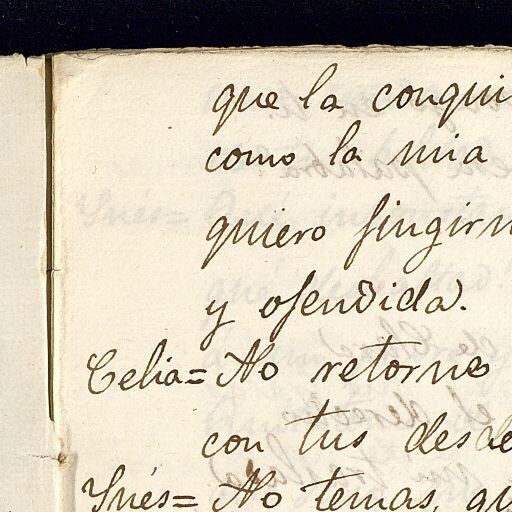 que la conqui
como la mia
quiero fingirm
y ofendida.
Celia= No retornes
con tus desde
Ynés= No temas, qu